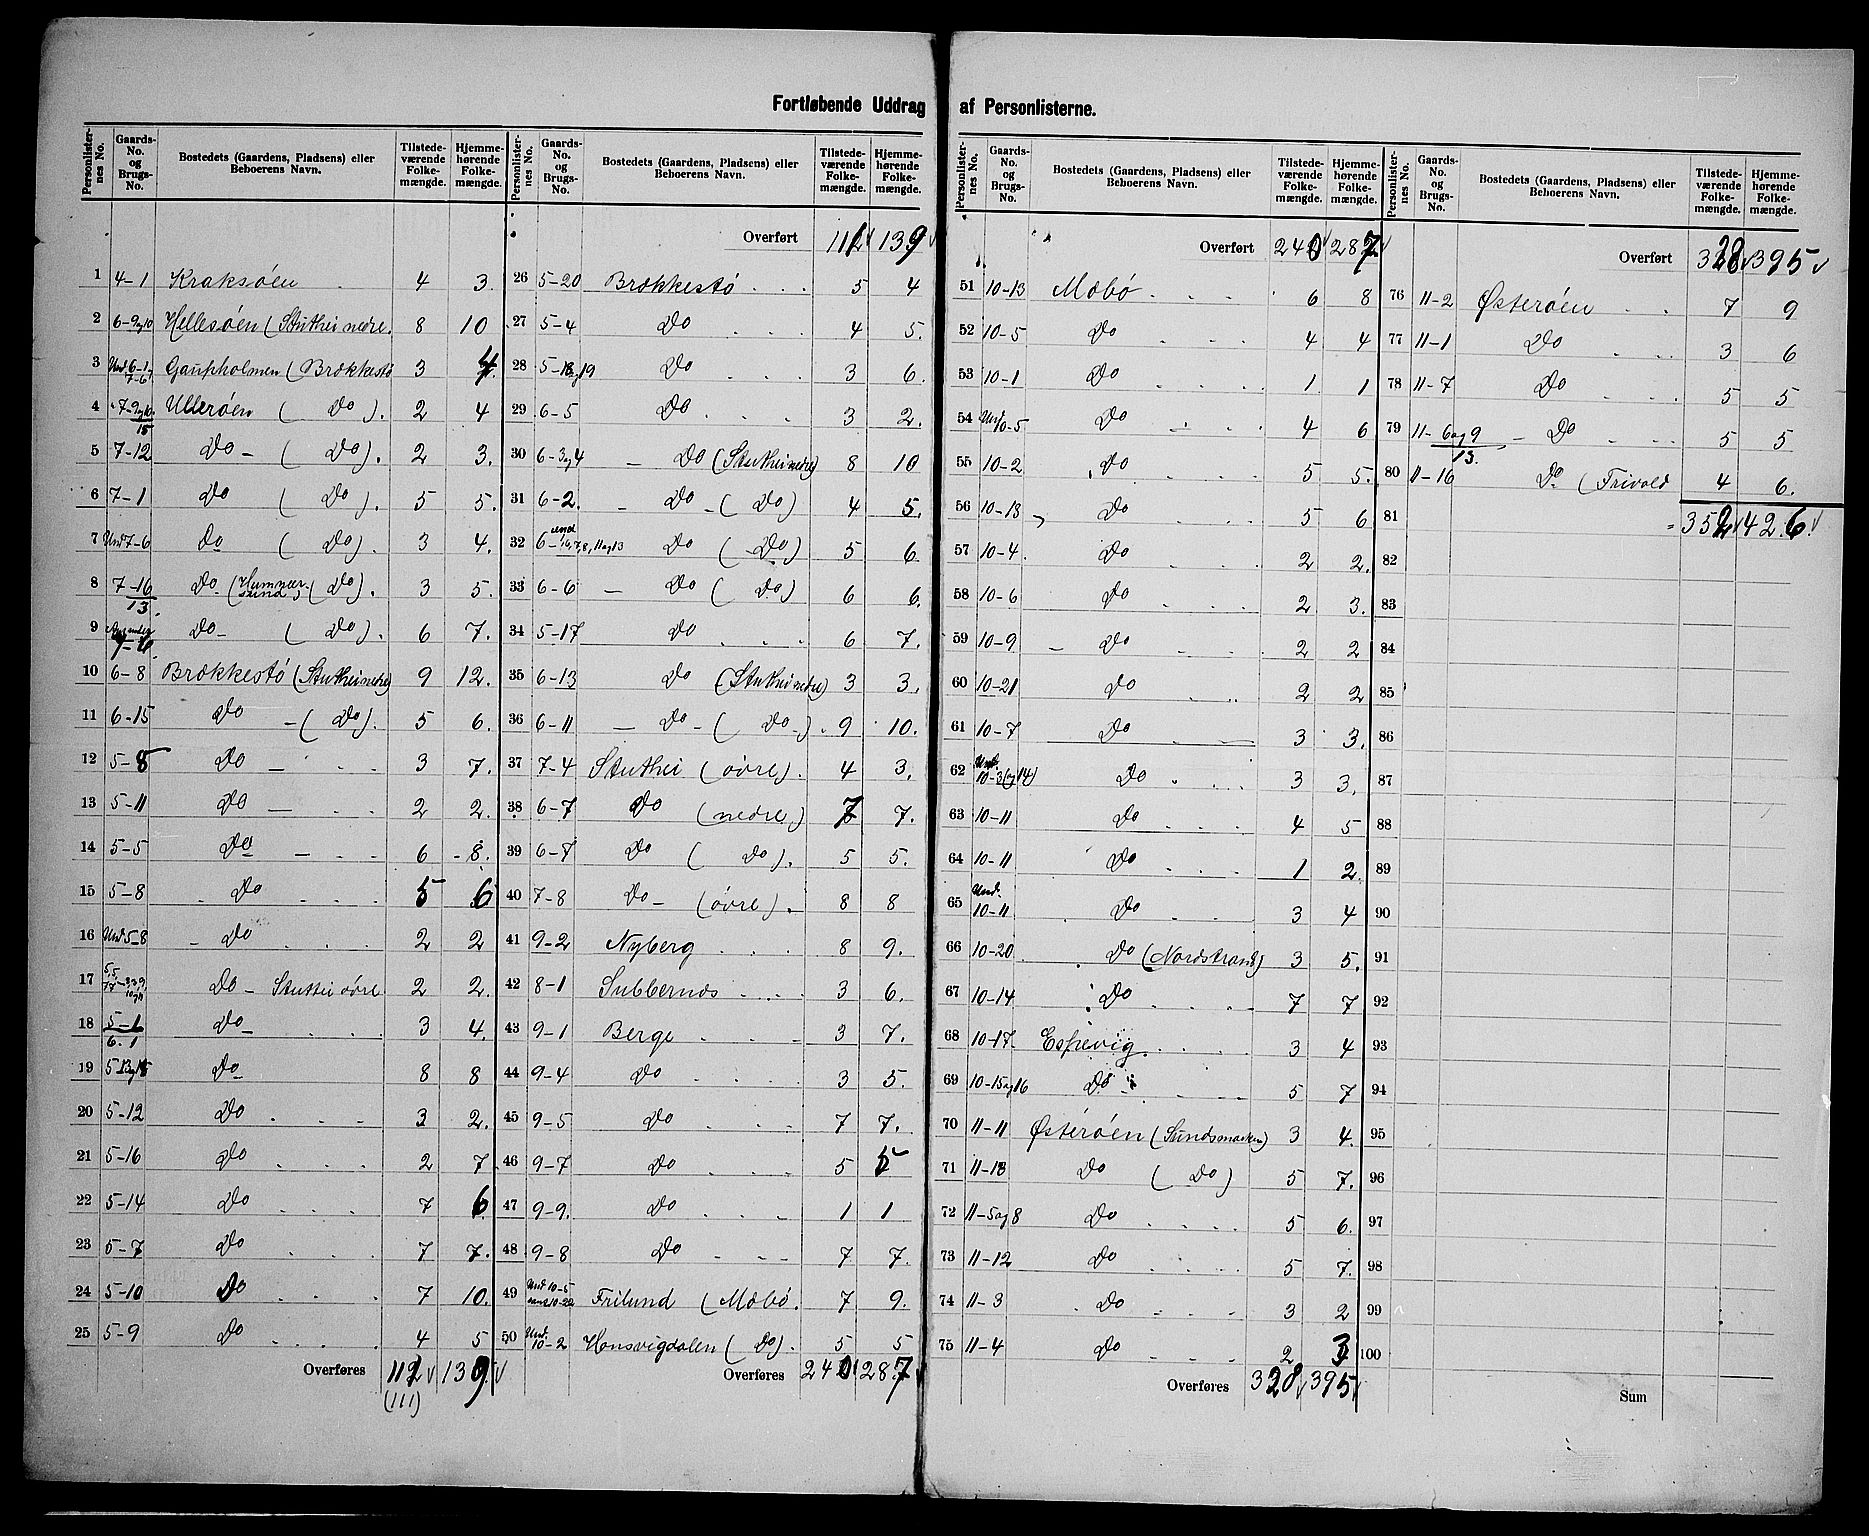 Fortløbende Uddrag af Personlisterne.
Personlister-nes No. | Gaards-No. og Brugs-No. | Bostedets (Gaardens, Pladsens) eller Beboerens Navn. | Tilstede-værende Folke-mængde. | Hjemme-hørende Folke-mængde.
1 4-1 Kraksöen 4 3.
2 6-9og10 Hellesöen (Stuthei nedre. 8 10
3 Und. 6-1, 7-6 Gaupholmen (Brækkestö 3 4
4 7-9og10. 15 Ulleröen (Do). 2 4
5 7-12 Do - (Do). 2 3.
6 7-1 Do (Do). 5 5.
7 Und 7-6 Do (Do). 3 4.
8 7-16 13. Do. (Hummer-sund) (Do). 3 5.
9 7-6 Do- (Do). 6 7.
10 6-8 Brækkestö (Stuthei nedre) 9 12.
11 6-15 Do - (Do). 5 6.
12 5-8 Do - 3 7.
13 5-11 Do - 2 2.
14 5-5 Do - 6 8.
15 5-8 Do 5 6
16 Und 5-8 Do 2 2
17 Do - Stuthei övre 2 2.
18 5-1 6.1 Do- 3 4.
19 5-13og15 Do 8 8
20 5-12 Do 3 2.
21 5-16 Do 2 7.
22 5-14 Do 7 6
23 5-7 Do 7 7.
24 5-10 Do 7 10.
25 5-9 Do 4 5
Overføres 112 139
(111)
Personlister-nes No. | Gaards-No. og Brugs-No. | Bostedets (Gaardens, Pladsens) eller Beboerens Navn. | Tilstede-værende Folke-mængde. | Hjemme-hørende Folke-mængde.
Overført 112 139
26 5-20 Brækkestö 5 4
27 5-4 Do 4 5.
28 5-18og19 Do 3 6.
29 6-5 Do 3 2.
30 6-3og4 - Do (Stuthei nedre) 8 10
31 6-2. - Do - (Do) 4 5.
32 6-16,7,8,11og13 Do (Do) 5 6
33 6-6 - Do (Do) 6 6.
34 5-17 Do 6 7.
35 6-13 Do (Stuthei nedre) 3 3.
36 6-11 - Do - (Do.) 9 10.
37 7-4 Stuthei (övre). 4 3.
38 6-7 Do (nedre) 7 7.
39 6-7 Do (Do). 5 5.
40 7-8 Do - (övre). 8 8
41 9-2 Nyberg 8 9.
42 8-1 Subbernæs 3 6.
43 9-1 Berge 3 7.
44 9-4 Do 3 5.
45 9-5 Do 7 7.
46 9-7 Do 5 5
47 9-9. Do 1 1
48 9-8 Do 7 7.
49 Und 10-5 samt 10-22 Frilund (Mæbö. 7 9.
50 Und. 10-2 Hansvigdalen (Do). 5 5
Overføres 240 287
Personlister-nes No. | Gaards-No. og Brugs-No. | Bostedets (Gaardens, Pladsens) eller Beboerens Navn. | Tilstede-værende Folke-mængde. | Hjemme-hørende Folke-mængde.
Overført 240 287
51 10-13 Mæbö 6 8
52 10-5 Do 4 4
53 10-1 Do 1. 1
54 Und 10-5 Do 4 6
55 10-2 Do 5 5.
56 10-13 Do 5 6
57 10-4 Do 2 2.
58 10-6 Do 2 3.
59 10-9 - Do 2 2
60 10-21 Do 2 2
61 10-7 Do 3 3.
62 Und. 10-3(og14) Do 3 3.
63 10-11 Do 4 5
64 10-11 Do 1 2.
65 Und. 10-11 Do 3 4
66 10-20 Do (Nordstrand) 3 5.
67 10-14 Do 7 7
68 10-17. Espevig 3 4
69 10-15og16 Do 5 7
70 11-11 Østeröen (Sundsmarken) 3 4.
71 11-13 Do (Do) 5 7.
72 11-5og8 Do 5 6.
73 11-12 Do 5 7.
74 11-3 Do 3 2
75 11-4 Do 2 3
Overføres 328 395
Personlister-nes No. | Gaards-No. og Brugs-No. | Bostedets (Gaardens, Pladsens) eller Beboerens Navn. | Tilstede-værende Folke-mængde. | Hjemme-hørende Folke-mængde.
Overført 328 395
76 11-2 Østeröen 7 9
77 11-1 Do 3 6
78 11-7 Do 5 5
79 11-6og9 13. - Do 5 5
80 11-16 Do (Frivold 4 6.
81 352 426
82
83
84
85
86
87
88
89
90
91
92
93
94
95
96
97
98
99
100
Sum